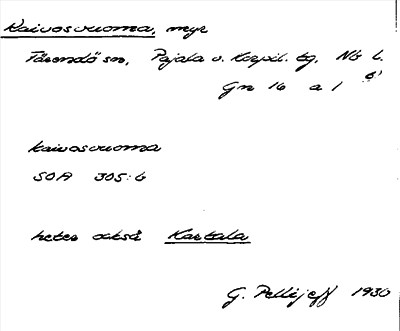 Kaivosvuoma, myr
Tärendö sn, Pajala o. Korpil. tg. Nb l.
Gn 16 a 1
kaivosvuoma
SOA 305:6
heter också Kartala
G. Pellijeff 1930